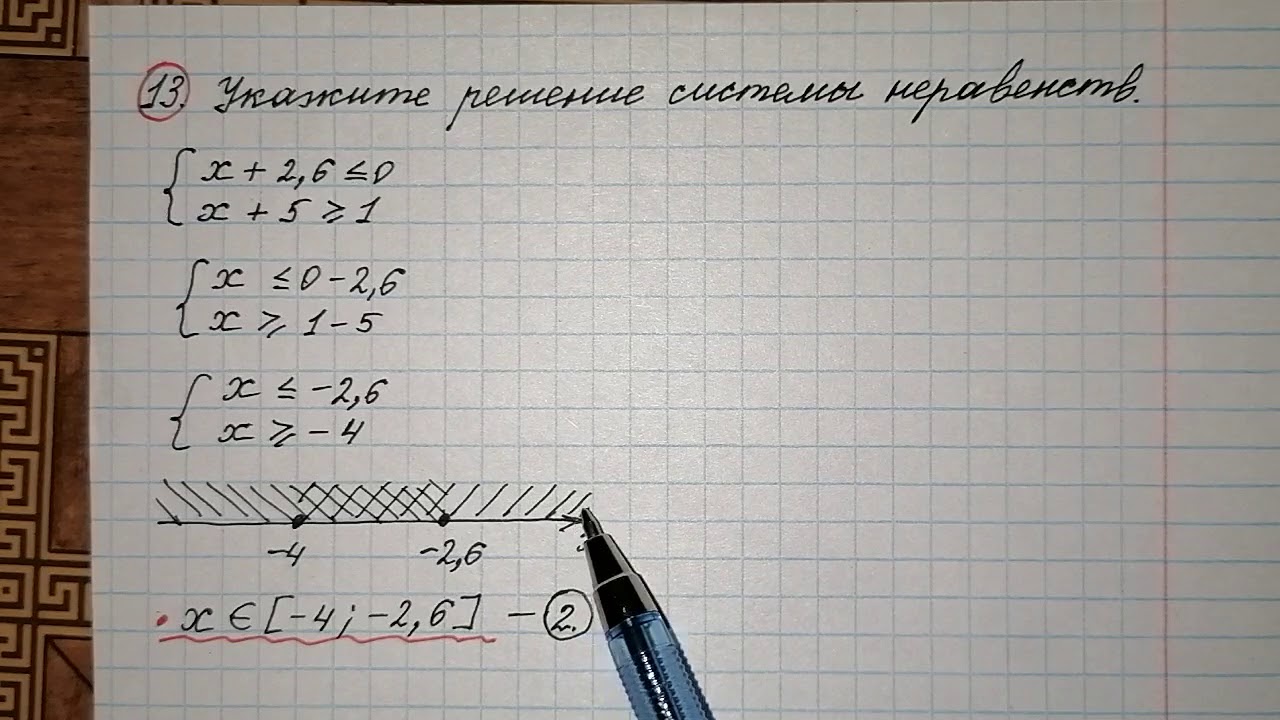 13. Укажите решение системы неравенств.
{ x + 2,6 ≤ 0
x + 5 ≥ 1
{ x ≤ 0 - 2,6
x ≥ 1 - 5
{ x ≤ -2,6
x ≥ -4
-4 -2,6
x ∈ [-4; -2,6] - 2.